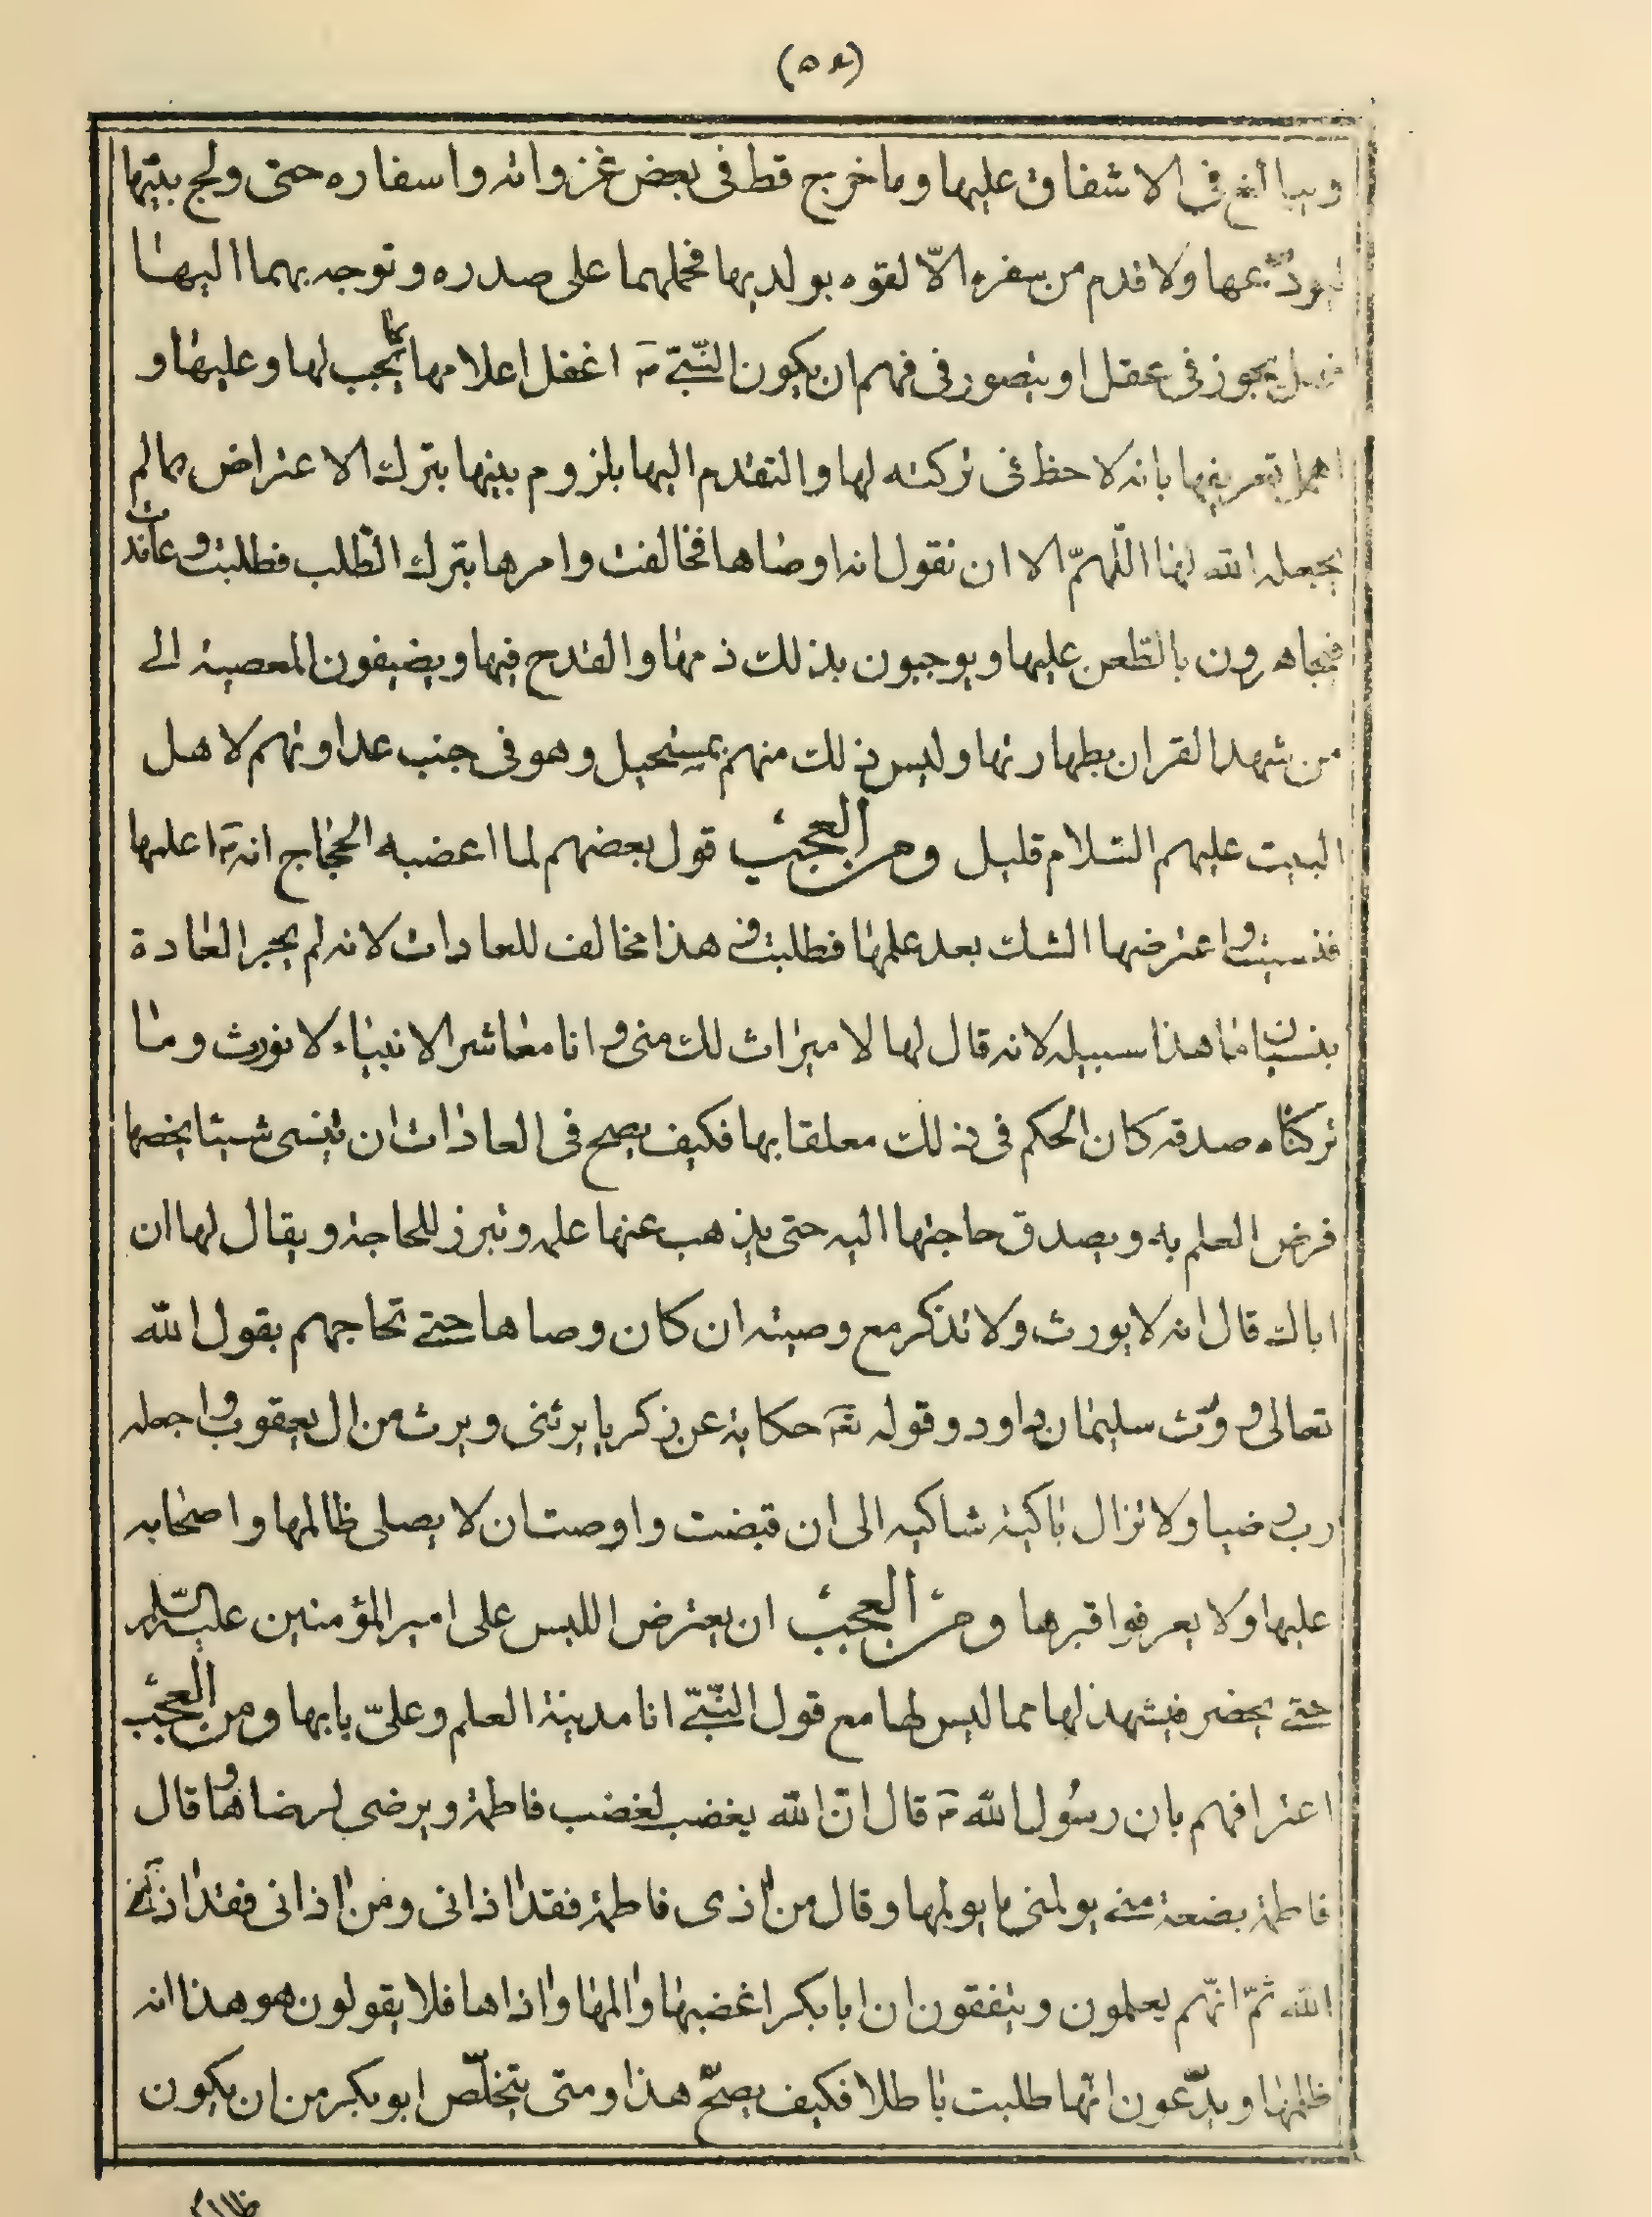 (٥٤)
ويبالغ في الاشفاق عليها وما خرج قط في بعض غزواته واسفاره حتى ولج بيتها
ليودّعها ولا قدم من سفره الّا لقوه بولديها فحملهما على صدره وتوجه بهما اليها
فهل يجوز في عقل او يتصور في فهم ان يكون النّبيّ ص اغفل اعلامها بما يجب لها وعليها و
اهمل تعريفها بانه لا حظ في تركته لها والتقدم اليها بلزوم بيتها بترك الاعتراض بما لم
يجعله الله لها اللّهمّ الا ان نقول انه اوصاها فخالفت وامرها بترك الطّلب فطلبت وعاندت
فيجاهرون بالطّعن عليها ويوجبون بذلك ذمها والقدح فيها ويضيفون المعصية الى
من شهد القران بطهارتها وليس ذلك منهم بمستحيل وهو في جنب عداوتهم لاهل
البيت عليهم السّلام قليل ومن العجب قول بعضهم لما اعضبه الحجاج انه ص اعلمها
فنسيت واعترضها الشك بعد علمها فطلبت وهذا مخالف للعادات لانه لم يجر العادة
بنسيان ما هذا سبيله لانه قال لها لا ميراث لك مني وانا معاشر الانبياء لا نورث وما
تركناه صدقه كان الحكم في ذلك معلقا بها فكيف يصح في العادات ان تنسى شيئا يخصها
فرض العلم به ويصدق حاجتها اليه حتى يذهب عنها علمه وتبرز للحاجة ويقال لها ان
اباك قال انه لا يورث ولا تذكر مع وصيته ان كان وصاها حتى تحاجهم بقول الله
تعالى وورث سليمان داود وقوله تع حكاية عن زكريا يرثني ويرث من ال يعقوب واجعله
رب رضيا ولا تزال باكية شاكيه الى ان قبضت واوصت ان لا يصلى ظالمها واصحابه
عليها ولا يعرفوا قبرها ومن العجب ان يعترض اللبس على امير المؤمنين عليه السّلام
حتى يحضر فيشهد لها مما ليس لها مع قول النّبيّ انا مدينة العلم وعليّ بابها ومن العجب
اعترافهم بان رسول الله ص قال انّ الله يغضب لغضب فاطمة ويرضى لرضاها وقال
فاطمة بضعة مني يولمني ما يولمها وقال من اذى فاطمة فقد اذاني ومن اذاني فقد اذى
الله ثمّ انّهم يعلمون ويتفقون ان ابا بكر اغضبها والمها واذاها فلا يقولون هو هذا انه
ظلمها ويدّعون انّها طلبت باطلا فكيف يصحّ هذا ومتى يتخلّص ابو بكر من ان يكون
ظالما